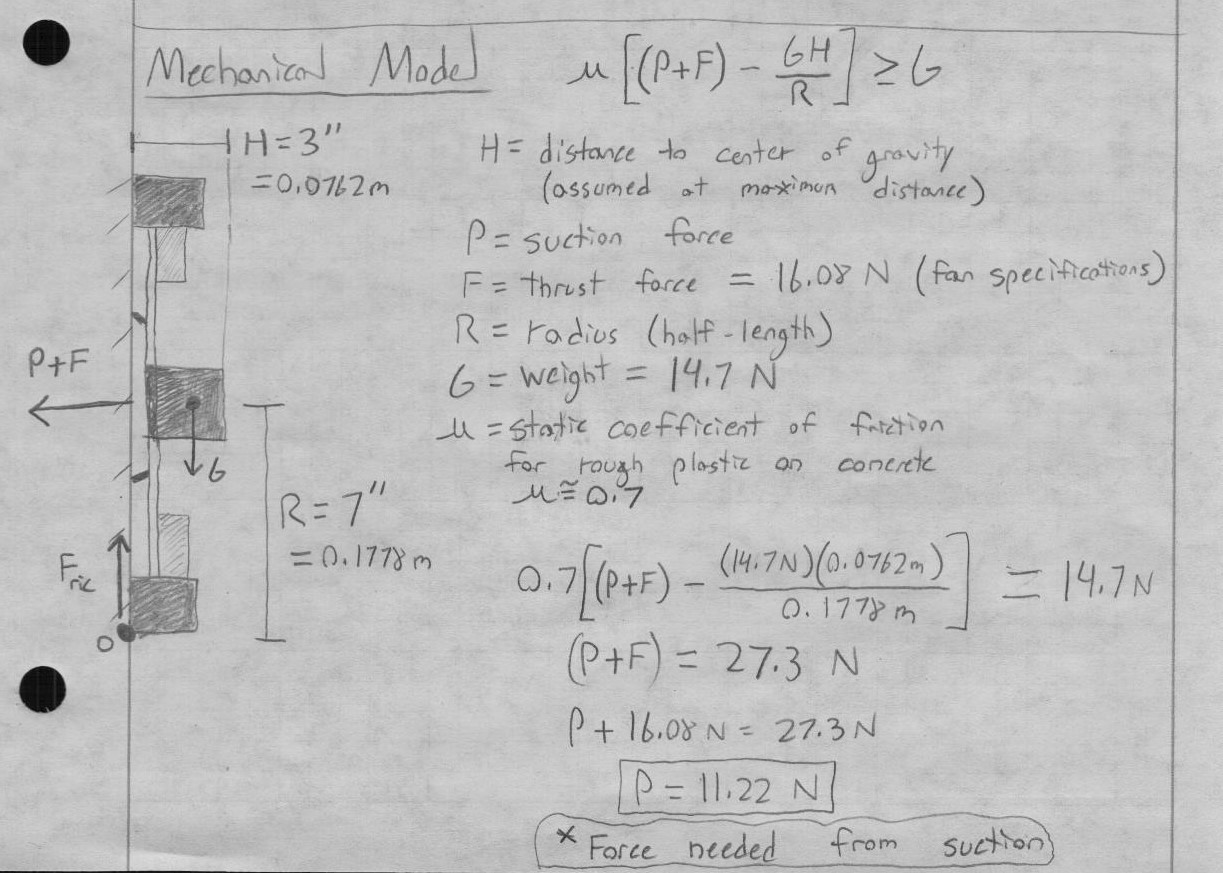 Mechanical Model
μ[(P+F) - GH/R] ≥ G
H=3"
=0.0762m
H= distance to center of gravity
(assumed at maximum distance)
P= suction force
F= thrust force = 16.08 N (fan specifications)
R= radius (half-length)
G= weight = 14.7 N
μ=static coefficient of friction
for rough plastic on concrete
μ≅0.7
P+F
G
R=7"
=0.1778m
Fric
O
0.7[(P+F) - (14.7N)(0.0762m)/0.1778m] = 14.7N
(P+F) = 27.3 N
P+16.08N= 27.3N
P=11.22 N
* Force needed from suction